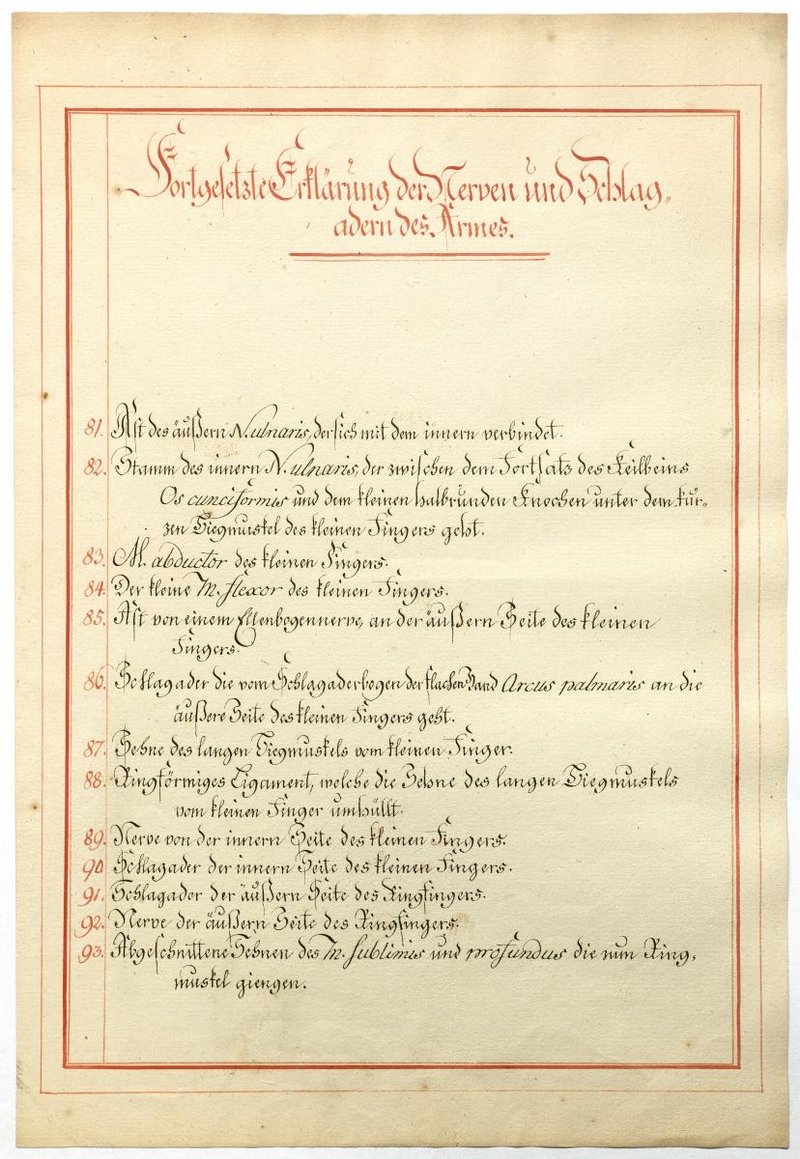 Fortgesetzte Erklärung der Nerven und Schlag„
adern des Armes.
81. Ast des äußern N. ulnaris, der sich mit dem innern verbindet.
82. Stamm des innern N. ulnaris, der zwischen dem Fortsatz des Keilbeins
Os cunciformis und dem kleinen halbrunden Knochen unter dem kur„
zen Biegmuskel des kleinen Fingers geht.
83. M. abductor des kleinen Fingers.
84. Der kleine M. flexor des kleinen Fingers.
85. Ast von einem Ellenbogennerve, an der äußern Seite des kleinen
Fingers.
86. Schlagader die vom Schlagaderbogen der flachen Hand Arcus palmaris an die
äußere Seite des kleinen Fingers geht.
87. Sehne des langen Biegmuskels vom kleinen Finger.
88. Ringförmiges Ligament, welche die Sehne des langen Biegmuskels
vom kleinen Finger umhüllt.
89. Nerve von der innern Seite des kleinen Fingers.
90 Schlagader der innern Seite des kleinen Fingers.
91. Schlagader der äußern Seite des Ringfingers.
92. Nerve der äußern Seite des Ringfingers.
93. Abgeschnittene Sehnen des M. sublimis und profundus die zum Ring„
muskel giengen.